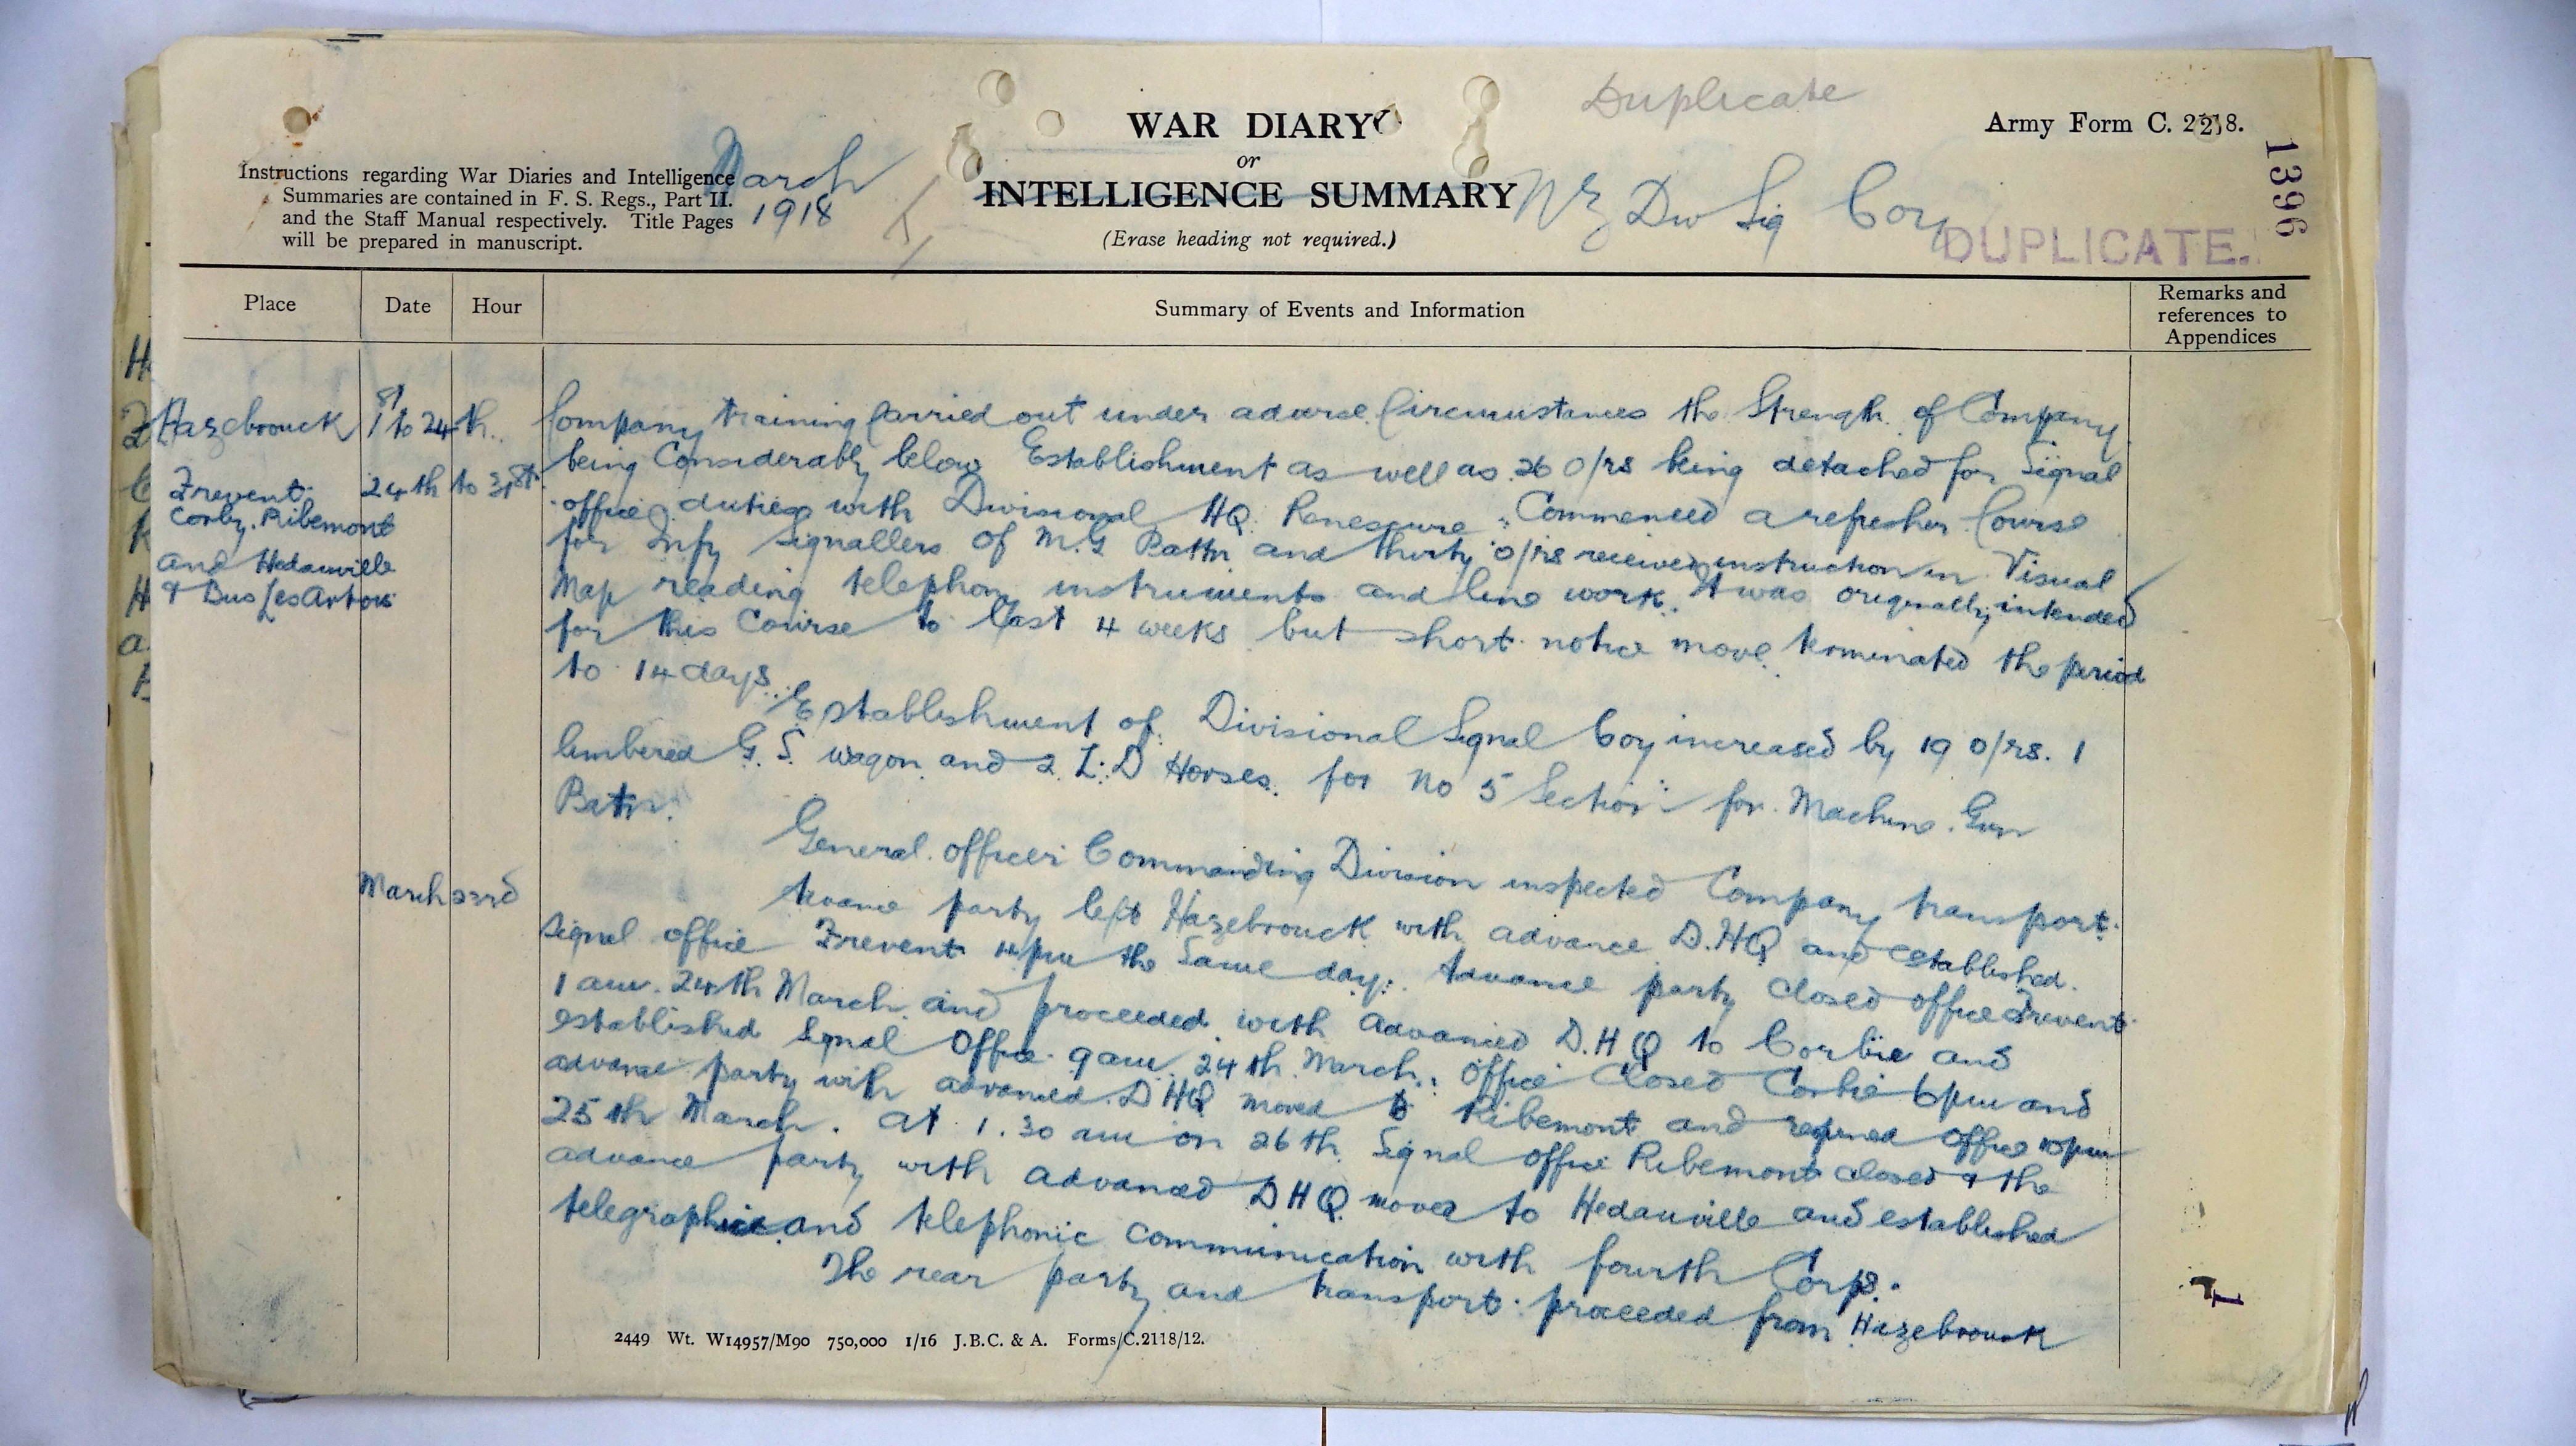 Duplicate
WAR DIARY
or
INTELLIGENCE SUMMARY
(Erase heading not required.)
Army Form C. 2118.
1396
Instructions regarding War Diaries and Intelligence
Summaries are contained in F. S. Regs., Part II.
and the Staff Manual respectively. Title Pages
will be prepared in manuscript.
March
1918
NZ Div Sig Coy
DUPLICATE.
Place
Date
Hour
Summary of Events and Information
Remarks and
references to
Appendices
Hazebrouck 1st to 24th.
Frevent 24th to 31st
Corby. Ribemont
and Hedauville
& Bus les Artois
Company training Carried out under adverse Circumstances the Strength of Company
being Considerably below Establishment as well as 26 O/rs being detached for Signal
office duties with Divisional HQ. Renescure. Commenced a refresher Course
for Infy Signallers of M.G Battn and thirty O/rs received instruction in Visual
Map reading telephone instruments and line work. It was originally intended
for this Course to last 4 weeks but short notice move terminated the period
to 14 days.
Establishment of Divisional Signal Coy increased by 19 O/rs. 1
limbered G. S. wagon and 2 L. D Horses for No 5 Section for Machine Gun
Battn.
General Officer Commanding Division inspected Company transport.
March 23rd
Advance party left Hazebrouck with advance D.HQ and established
Signal office Frevent 4pm the Same day. Advance party closed office Frevent
1 am. 24th March and proceeded with Advanced D.H Q to Corbie and
established Signal Office 9 am 24th March. Office Closed Corbie 6pm and
advance party with advanced DHQ moved to Ribemont and reopened Office 10pm
25th March. At 1.30 am on 26th Signal office Ribemont closed & the
advance party with advanced DHQ moved to Hedauville and established
telegraphic and telephonic communication with fourth Corps.
The rear party and transport proceeded from Hazebrouck
2449 Wt. W14957/M90 750,000 1/16 J.B.C. & A. Forms/C.2118/12.